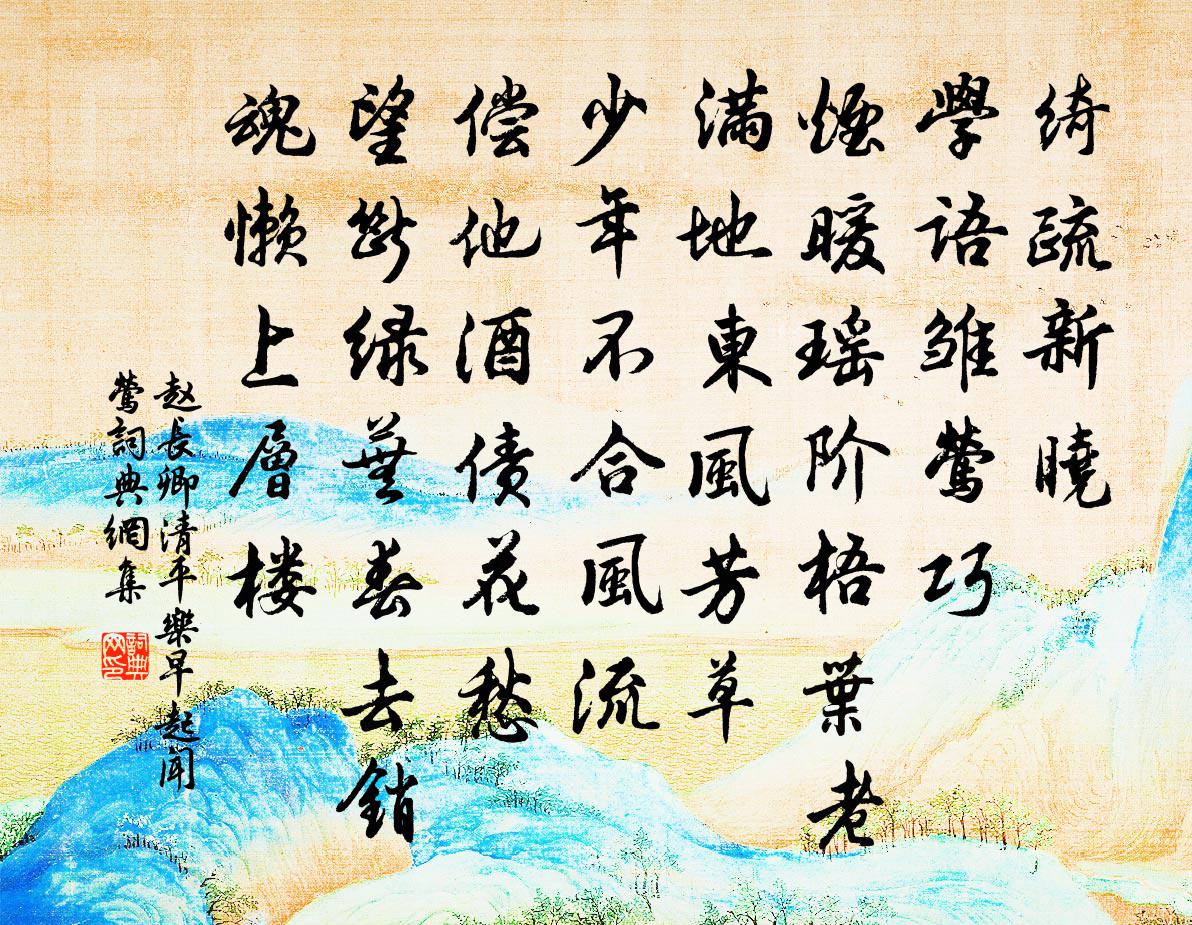 绮疏新曉
學語雏莺巧
煙暖瑶阶梧葉老
满地東風芳草
少年不合風流
偿他酒债花愁
望断绿蕪春去銷
魂懒上層楼
赵長卿清平樂早起聞
莺詞典網集
詞典
网印